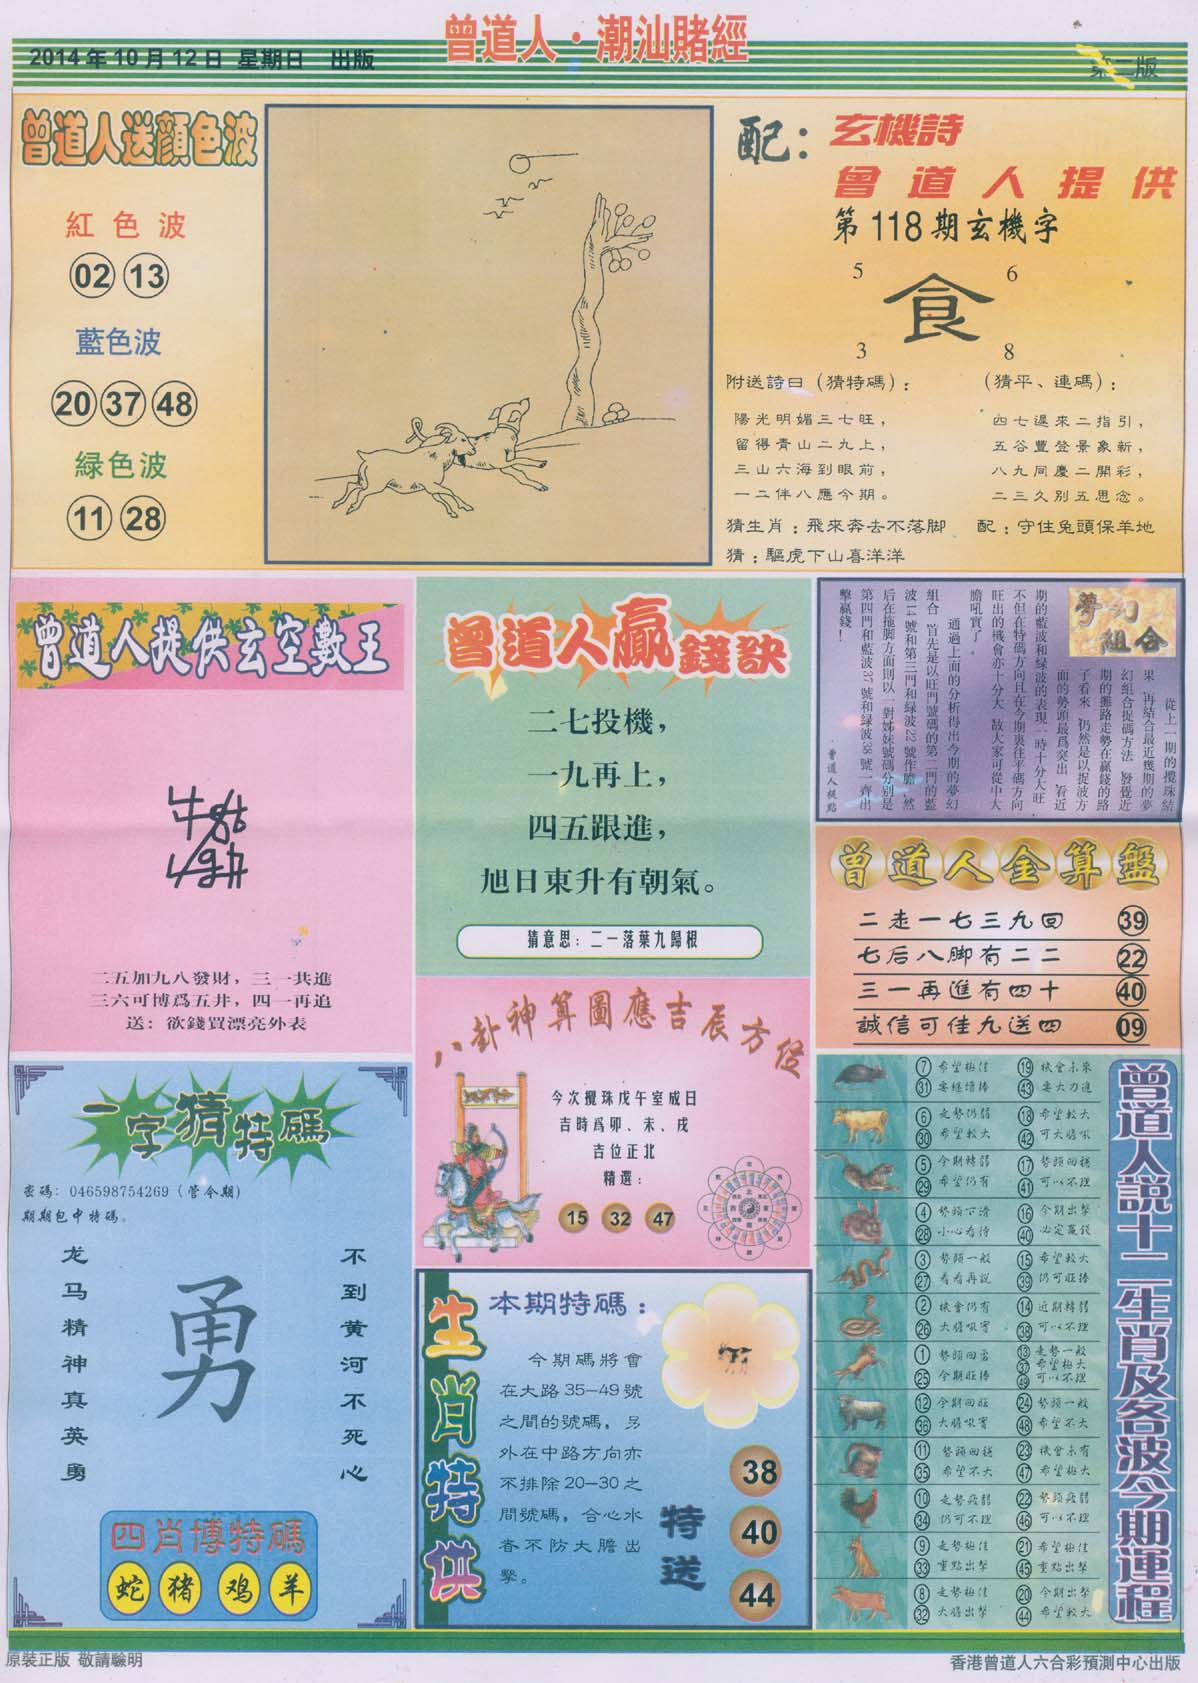 曾道人·潮汕賭經
2014年10月12日 星期日 出版
第二版
曾道人送顔色波
紅色波
02 13
藍色波
20 37 48
緑色波
11 28
配：玄機詩
曾道人提供
第118期玄機字
5 6
食
3 8
附送詩曰（猜特碼）：
陽光明媚三七旺，
留得青山二九上，
三山六海到眼前，
一二伴八應今期。
（猜平、連碼）：
四七遲來二指引，
五谷豐登景象新，
八九同慶二開彩，
二三久别五思念。
猜生肖：飛來奔去不落脚 配：守住兔頭保羊地
猜：驅虎下山喜洋洋
曾道人提供玄空數王
二五加九八發財，三一共進
三六可博爲五井，四一再追
送：欲錢買漂亮外表
曾道人贏錢訣
二七投機，
一九再上，
四五跟進，
旭日東升有朝氣。
猜意思：二一落葉九歸根
夢幻組合
從上一期的攪珠結
果，再結合最近幾期的夢
幻組合捉碼方法，發覺近
期的攤路走勢在贏錢的路
子看來，仍然是以捉波方
面的勢頭最爲突出，看近
期的藍波和緑波的表現一時十分大旺，
不但在特碼方向且在今期裏往平碼方向
旺出的機會亦十分大，故大家可從中大
膽吼實了。
通過上面的分析得出今期的夢幻
組合，首先是以旺門號碼的第二門的藍
波14號和第三門和緑波22號作膽，然
后在拖脚方面則以一對姊妹號碼分别是
第四門和藍波37號和緑波38號一齊出
擊贏錢！
曾道人提點
曾道人金算盤
二走一七三九回 39
七后八脚有二二 22
三一再進有四十 40
誠信可佳九送四 09
八卦神算圖應吉辰方位
今次攪珠戊午室成日
吉時爲卯、未、戌
吉位正北
精選：
15 32 47
一字猜特碼
密碼：046598754269（管今期）
期期包中特碼。
龙马精神真英勇
勇
不到黄河不死心
四肖博特碼
蛇 猪 鸡 羊
生肖特供
本期特碼：
今期碼將會
在大路35—49號
之間的號碼，另
外在中路方向亦
不排除20—30之
間號碼，合心水
者不防大膽出
擊。
特送
38
40
44
曾道人説十二生肖及各波今期運程
7 希望極佳 19 機會未來
31 要繼續捧 43 要大力追
6 走勢仍弱 18 希望較大
30 希望較大 42 可大膽吼
5 今期轉弱 17 勢頭回穩
29 希望仍有 41 可以不理
4 勢頭下滑 16 今期出擊
28 小心看待 40 必定贏錢
3 勢頭一般 15 希望較大
27 看看再説 39 仍可旺捧
2 機會仍有 14 近期轉弱
26 大膽吼實 38 可以不理
1 勢頭回落 13 走勢一般
37 希望極大
25 今期旺捧 49 可以不理
12 今期回旺 24 勢頭一般
36 大膽吼實 48 希望不大
11 勢頭回穩 23 機會未有
35 希望不大 47 希望極大
10 走勢疲弱 22 勢頭疲弱
34 仍可不理 46 可以不理
9 走勢極佳 21 希望極佳
33 重點出擊 45 重點出擊
8 走勢極佳 20 今期出擊
32 大膽出擊 44 希望較大
原裝正版 敬請驗明
香港曾道人六合彩預測中心出版